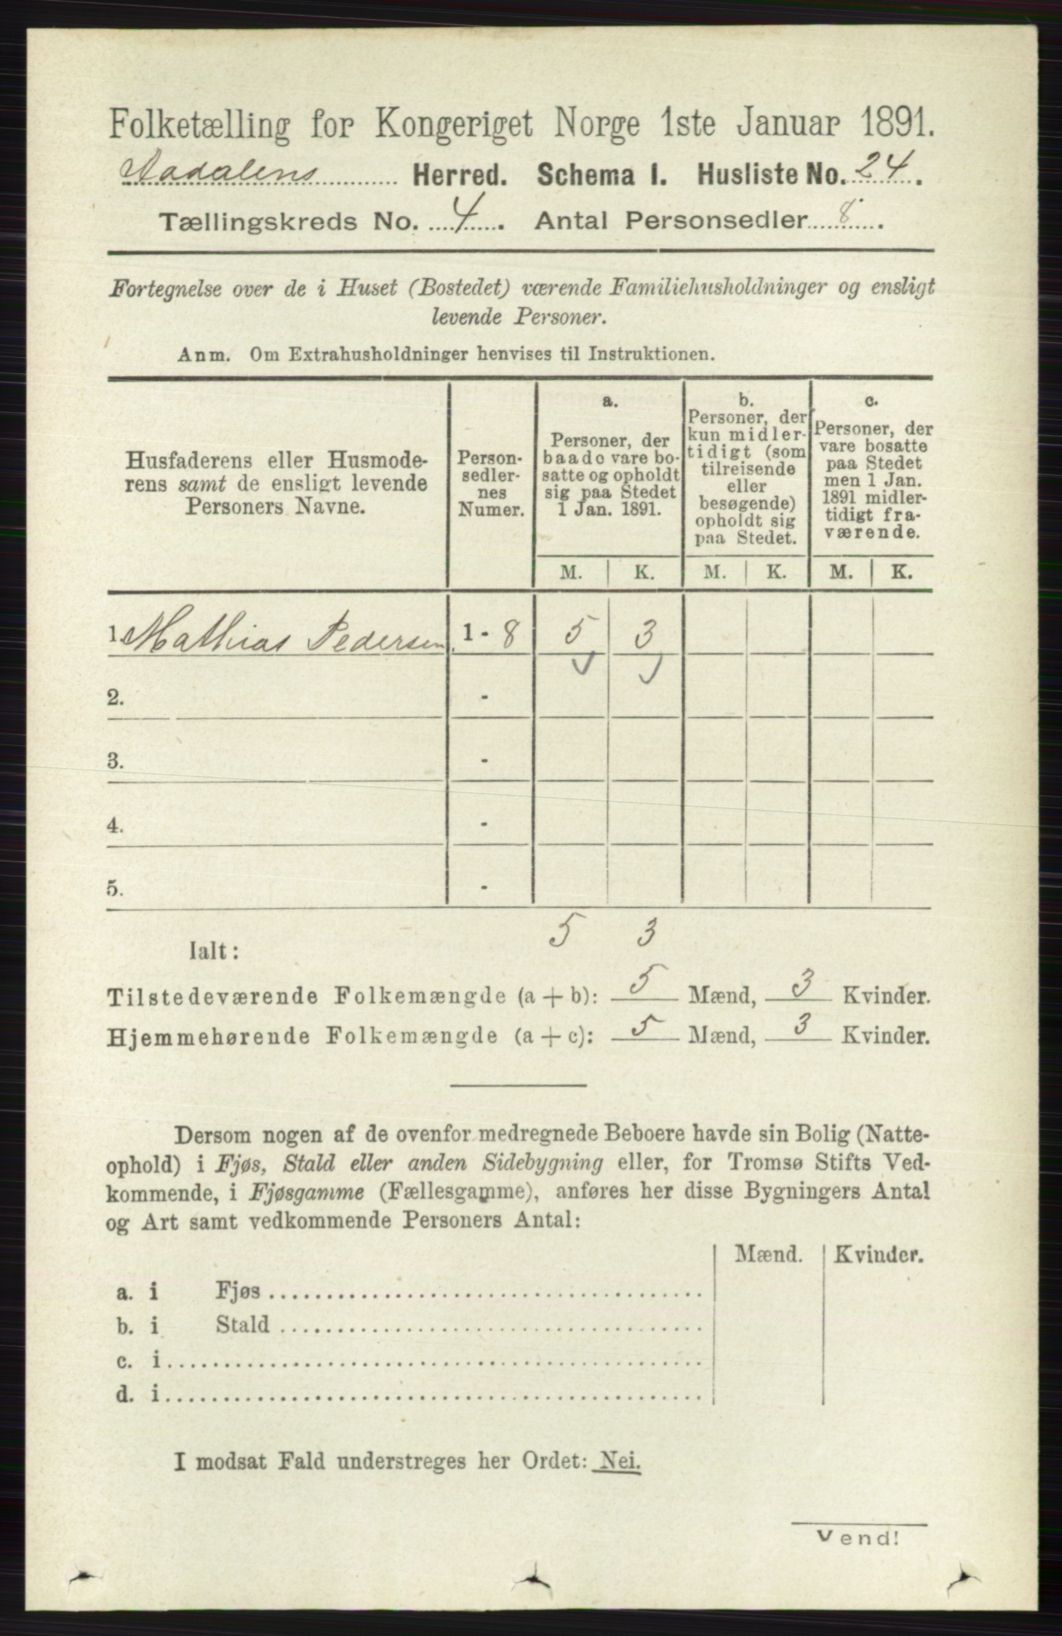 Folketælling for Kongeriget Norge 1ste Januar 1891.
Aadalens Herred. Schema I. Husliste No. 24.
Tællingskreds No. 4. Antal Personsedler 8.
Fortegnelse over de i Huset (Bostedet) værende Familiehusholdninger og ensligt
levende Personer.
Anm. Om Extrahusholdninger henvises til Instruktionen.
Husfaderens eller Husmode-
rens samt de ensligt levende
Personers Navne.
Person-
sedler-
nes
Numer.
a.
Personer, der
baade vare bo-
satte og opholdt
sig paa Stedet
1 Jan. 1891.
b.
Personer, der
kun midler-
tidigt (som
tilreisende
eller
besøgende)
opholdt sig
paa Stedet.
c.
Personer, der
vare bosatte
paa Stedet
men 1 Jan.
1891 midler-
tidigt fra-
værende.
M. K. M. K. M. K.
1. Mathias Pedersen 1 - 8 5 3
2. -
3. -
4. -
5. -
Ialt: 5 3
Tilstedeværende Folkemængde (a + b): 5 Mænd, 3 Kvinder.
Hjemmehørende Folkemængde (a + c): 5 Mænd, 3 Kvinder.
Dersom nogen af de ovenfor medregnede Beboere havde sin Bolig (Natte-
ophold) i Fjøs, Stald eller anden Sidebygning eller, for Tromsø Stifts Ved-
kommende, i Fjøsgamme (Fællesgamme), anføres her disse Bygningers Antal
og Art samt vedkommende Personers Antal:
Mænd. Kvinder.
a. i Fjøs
b. i Stald
c. i
d. i
I modsat Fald understreges her Ordet: Nei.
Vend!